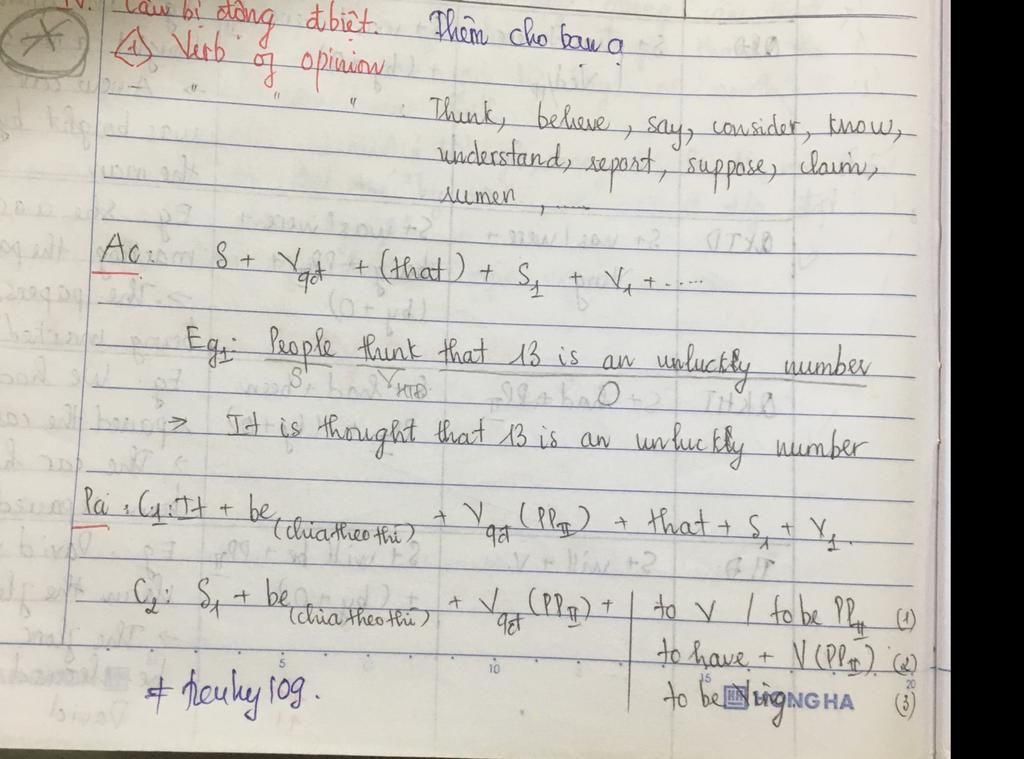 IV. Câu bị động đbiệt. Thêm cho bang
① Verb of opinion
" " " : Think, believe, say, consider, know,
understand, report, suppose, claim,
rumen, .....
Ac: S + Vqđ + (that) + S1 + V1 + .....
Eg1: People think that 13 is an unluckly number
S VHTĐ O
⇒ It is thought that 13 is an unluckly number
Pa: C1: It + be (chia theo thì) + Vqđ (PPII) + that + S1 + V1.
C2: S1 + be (chia theo thì) + Vqđ (PPII) + to V / to be PPII (1)
to have + V(PPII) (2)
to be Ving (3)
5 10 15 20
HONG HA